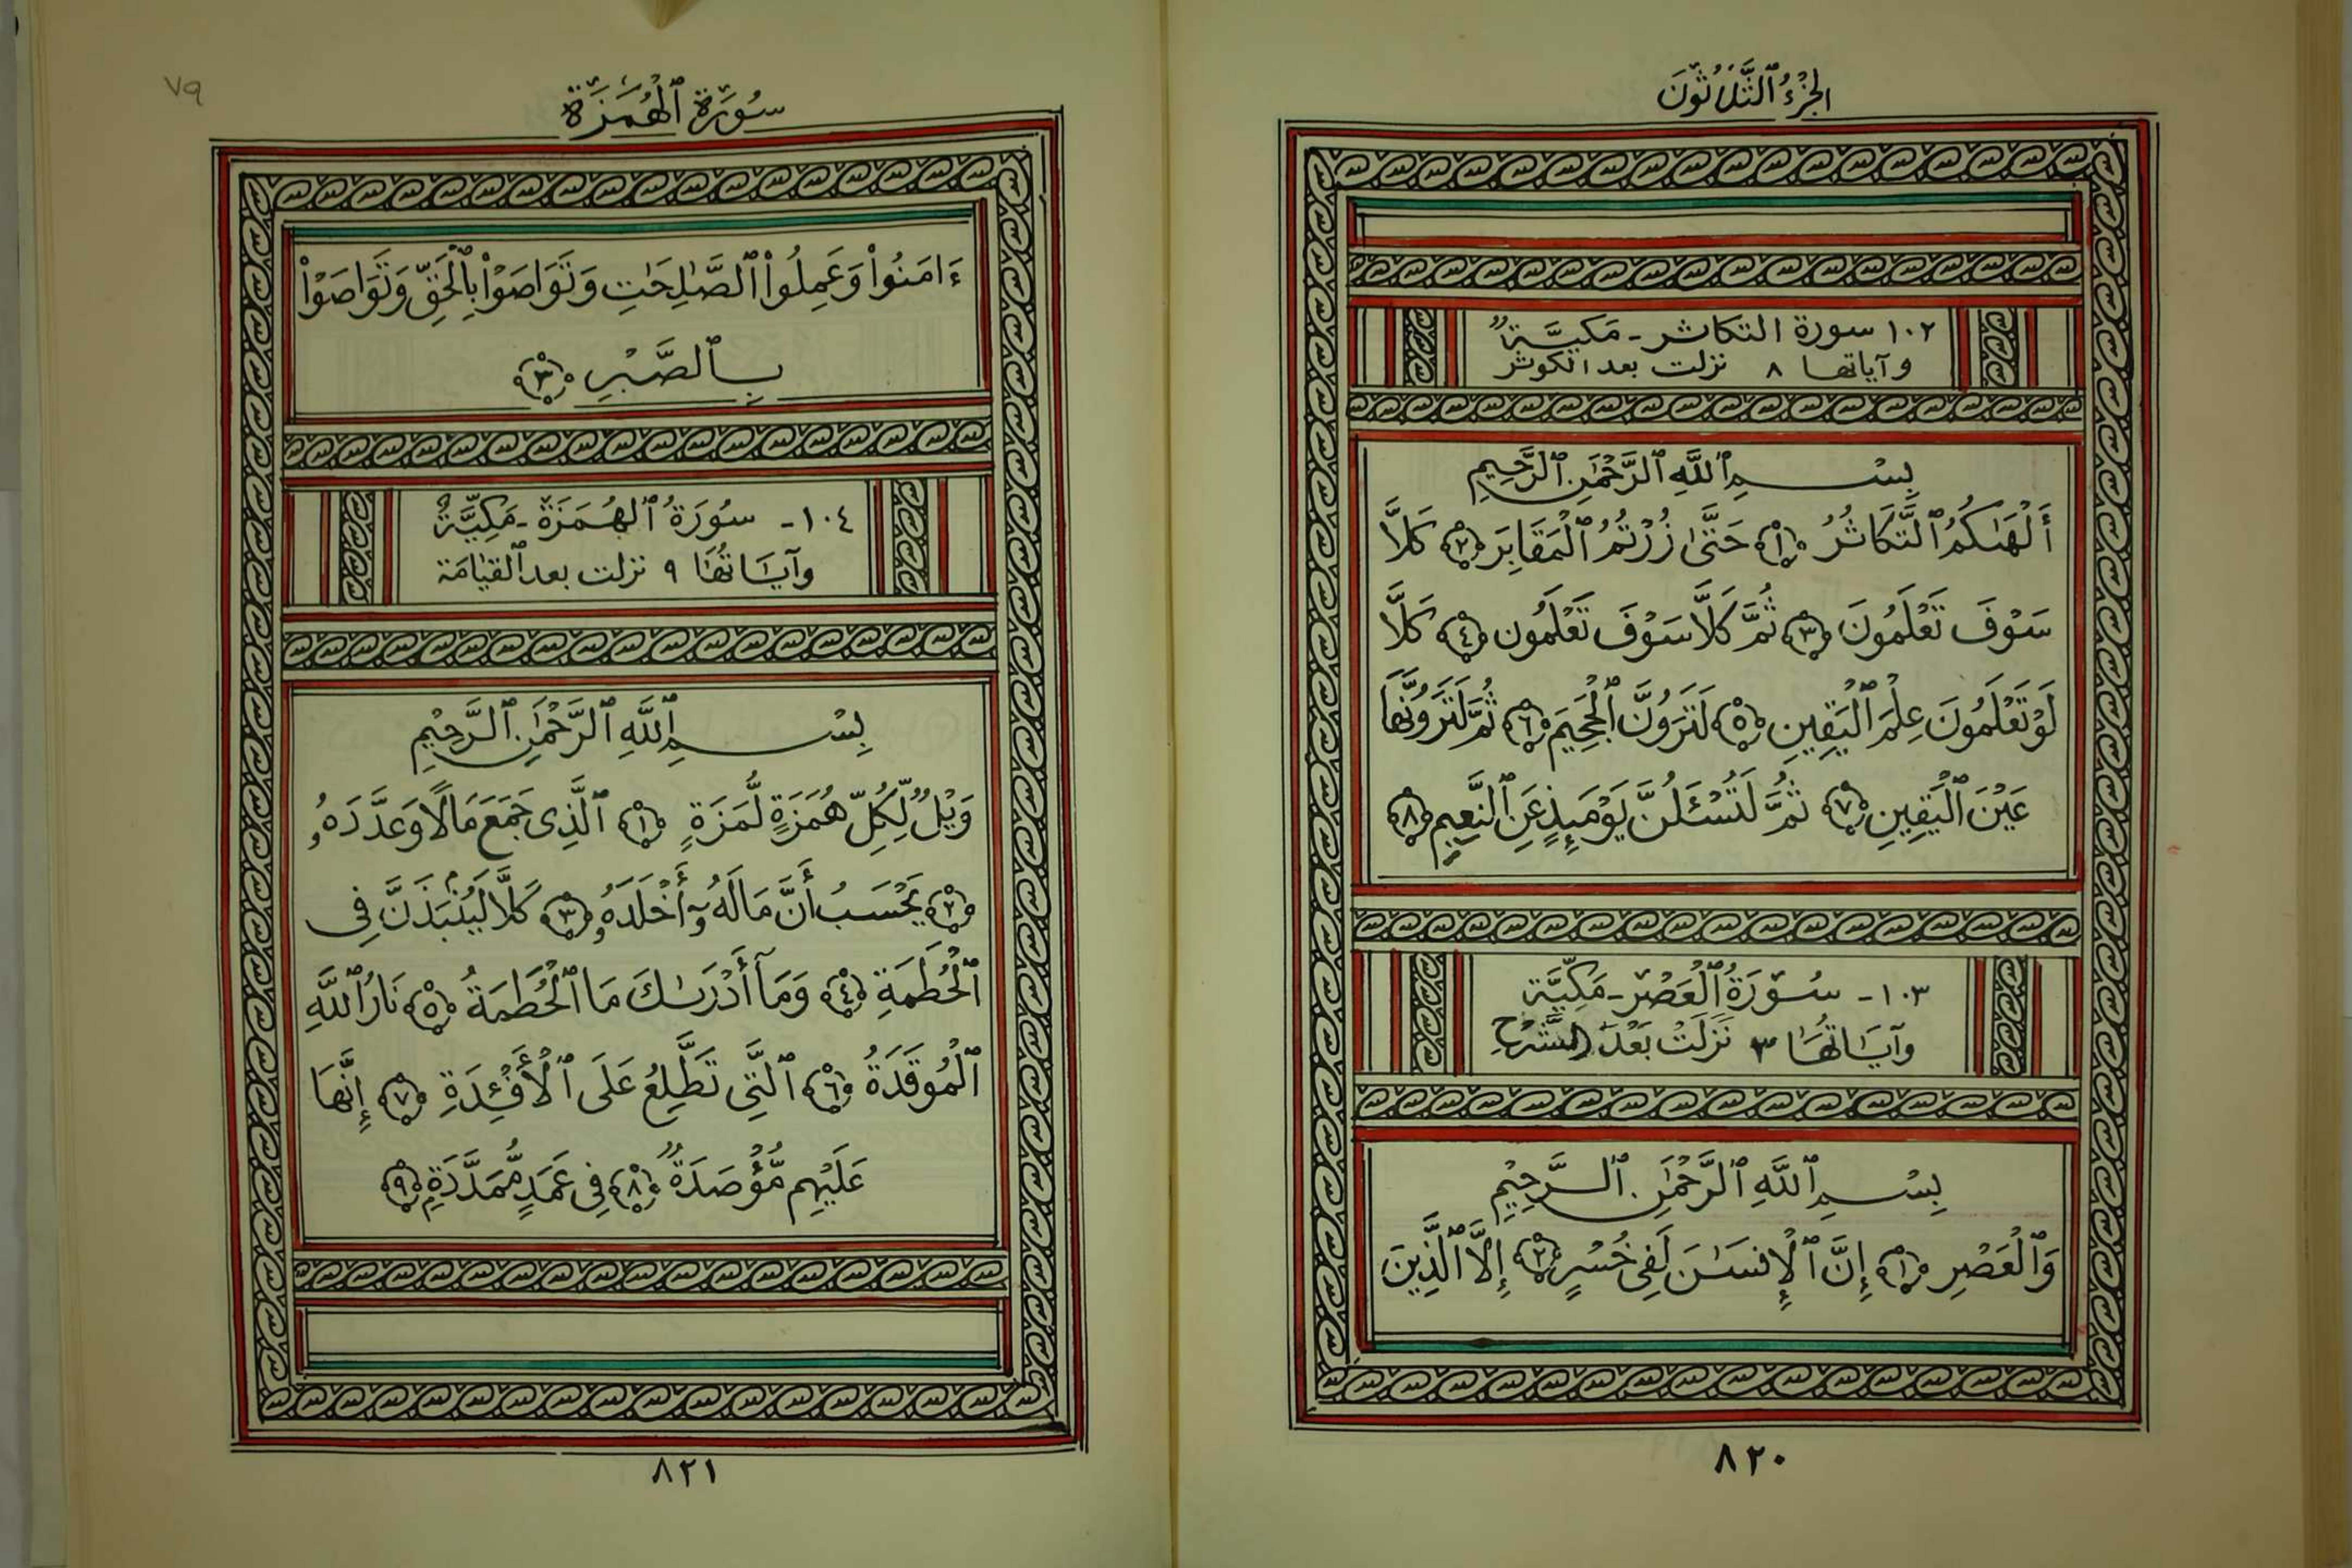 الجُزْءُ ٱلثَّلَاثُونَ
١٠٢ سورة التكاثر - مَكيَّةٌ
وآياتها ٨ نزلت بعد الكوثر
بِسْمِ ٱللَّهِ ٱلرَّحْمَٰنِ ٱلرَّحِيمِ
أَلْهَىٰكُمُ ٱلتَّكَاثُرُ ١ حَتَّىٰ زُرْتُمُ ٱلْمَقَابِرَ ٢ كَلَّا
سَوْفَ تَعْلَمُونَ ٣ ثُمَّ كَلَّا سَوْفَ تَعْلَمُون ٤ كَلَّا
لَوْ تَعْلَمُونَ عِلْمَ ٱلْيَقِينِ ٥ لَتَرَوُنَّ ٱلْجَحِيمَ ٦ ثُمَّ لَتَرَوُنَّهَا
عَيْنَ ٱلْيَقِينِ ٧ ثُمَّ لَتُسْـَٔلُنَّ يَوْمَئِذٍ عَنِ ٱلنَّعِيمِ ٨
١٠٣ - سُورَةُ ٱلْعَصْرِ - مَكِيَّة
وآيَاتُهَا ٣ نَزَلَتْ بَعْدَ الشَّرْحِ
بِسْمِ ٱللَّهِ ٱلرَّحْمَٰنِ ٱلرَّحِيْمِ
وَٱلْعَصْرِ ١ إِنَّ ٱلْإِنسَٰنَ لَفِى خُسْرٍ ٢ إِلَّا ٱلَّذِينَ
٨٢٠
٧٩
سُورَة ٱلْهُمَزَة
ءَامَنُوا۟ وَعَمِلُوا۟ ٱلصَّٰلِحَٰتِ وَتَوَاصَوْا۟ بِٱلْحَقِّ وَتَوَاصَوْا۟
بِٱلصَّبْرِ ٣
١٠٤ - سُورَةُ ٱلهُمَزَة - مَكِيَّةٌ
وآيَاتُهَا ٩ نزلت بعد ٱلقيَامَة
بِسْمِ ٱللَّهِ ٱلرَّحْمَٰنِ ٱلرَّحِيْمِ
وَيْلٌ لِّكُلِّ هُمَزَةٍ لُّمَزَةٍ ١ ٱلَّذِى جَمَعَ مَالًا وَعَدَّدَهُۥ
٢ يَحْسَبُ أَنَّ مَالَهُۥٓ أَخْلَدَهُۥ ٣ كَلَّا لَيُنۢبَذَنَّ فِى
ٱلْحُطَمَةِ ٤ وَمَآ أَدْرَىٰكَ مَا ٱلْحُطَمَةُ ٥ نَارُ ٱللَّهِ
ٱلْمُوقَدَةُ ٦ ٱلَّتِى تَطَّلِعُ عَلَى ٱلْأَفْـِٔدَةِ ٧ إِنَّهَا
عَلَيْهِم مُّؤْصَدَةٌ ٨ فِى عَمَدٍ مُّمَدَّدَةٍ ٩
٨٢١